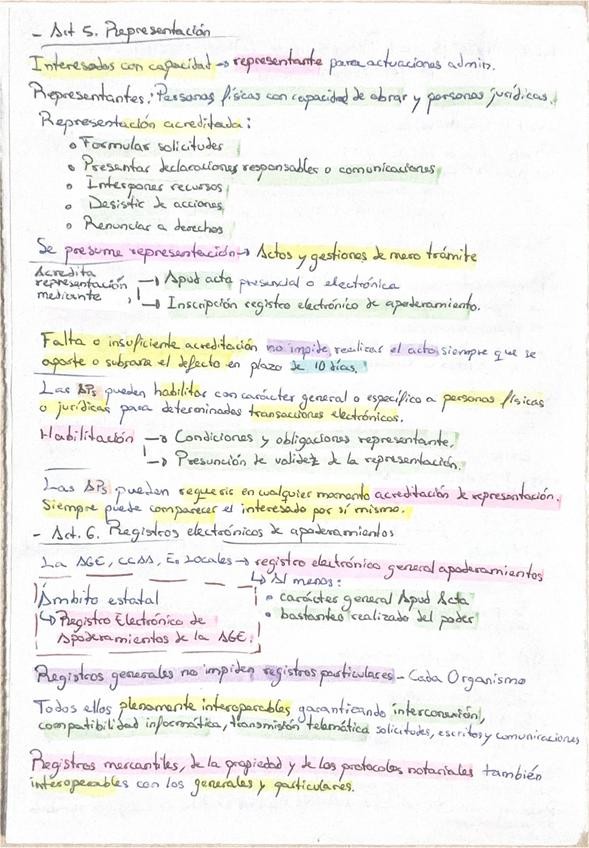 - Art 5. Representación
Interesados con capacidad → representante para actuaciones admin.
Representantes: Personas físicas con capacidad de obrar y personas jurídicas.
Representación acreditada:
• Formular solicitudes
• Presentar declaraciones responsables o comunicaciones
• Interponer recursos
• Desistir de acciones
• Renunciar a derechos
Se presume representación → Actos y gestiones de mero trámite
Acredita representación mediante
→ Apud acta presencial o electrónica
→ Inscripción registro electrónico de apoderamiento.
Falta o insuficiente acreditación no impide realizar el acto siempre que se
aporte o subsane el defecto en plazo de 10 días.
Las APs pueden habilitar con carácter general o específico a personas físicas
o jurídicas para determinadas transacciones electrónicas.
Habilitación → Condiciones y obligaciones representante.
→ Presunción de validez de la representación.
Las APs pueden requerir en cualquier momento acreditación de representación.
Siempre puede comparecer el interesado por sí mismo.
- Art. 6. Registros electrónicos de apoderamientos
La AGE, CCAA, E. Locales → registro electrónico general apoderamientos
↳ Al menos:
• carácter general Apud Acta
• bastanteo realizado del poder
Ámbito estatal
↳ Registro Electrónico de
Apoderamientos de la AGE.
Registros generales no impiden registros particulares - Cada Organismo
Todos ellos plenamente interoperables garantizando interconexión,
compatibilidad informática, transmisión telemática solicitudes, escritos y comunicaciones
Registros mercantiles, de la propiedad y de los protocolos notariales también
interoperables con los generales y particulares.